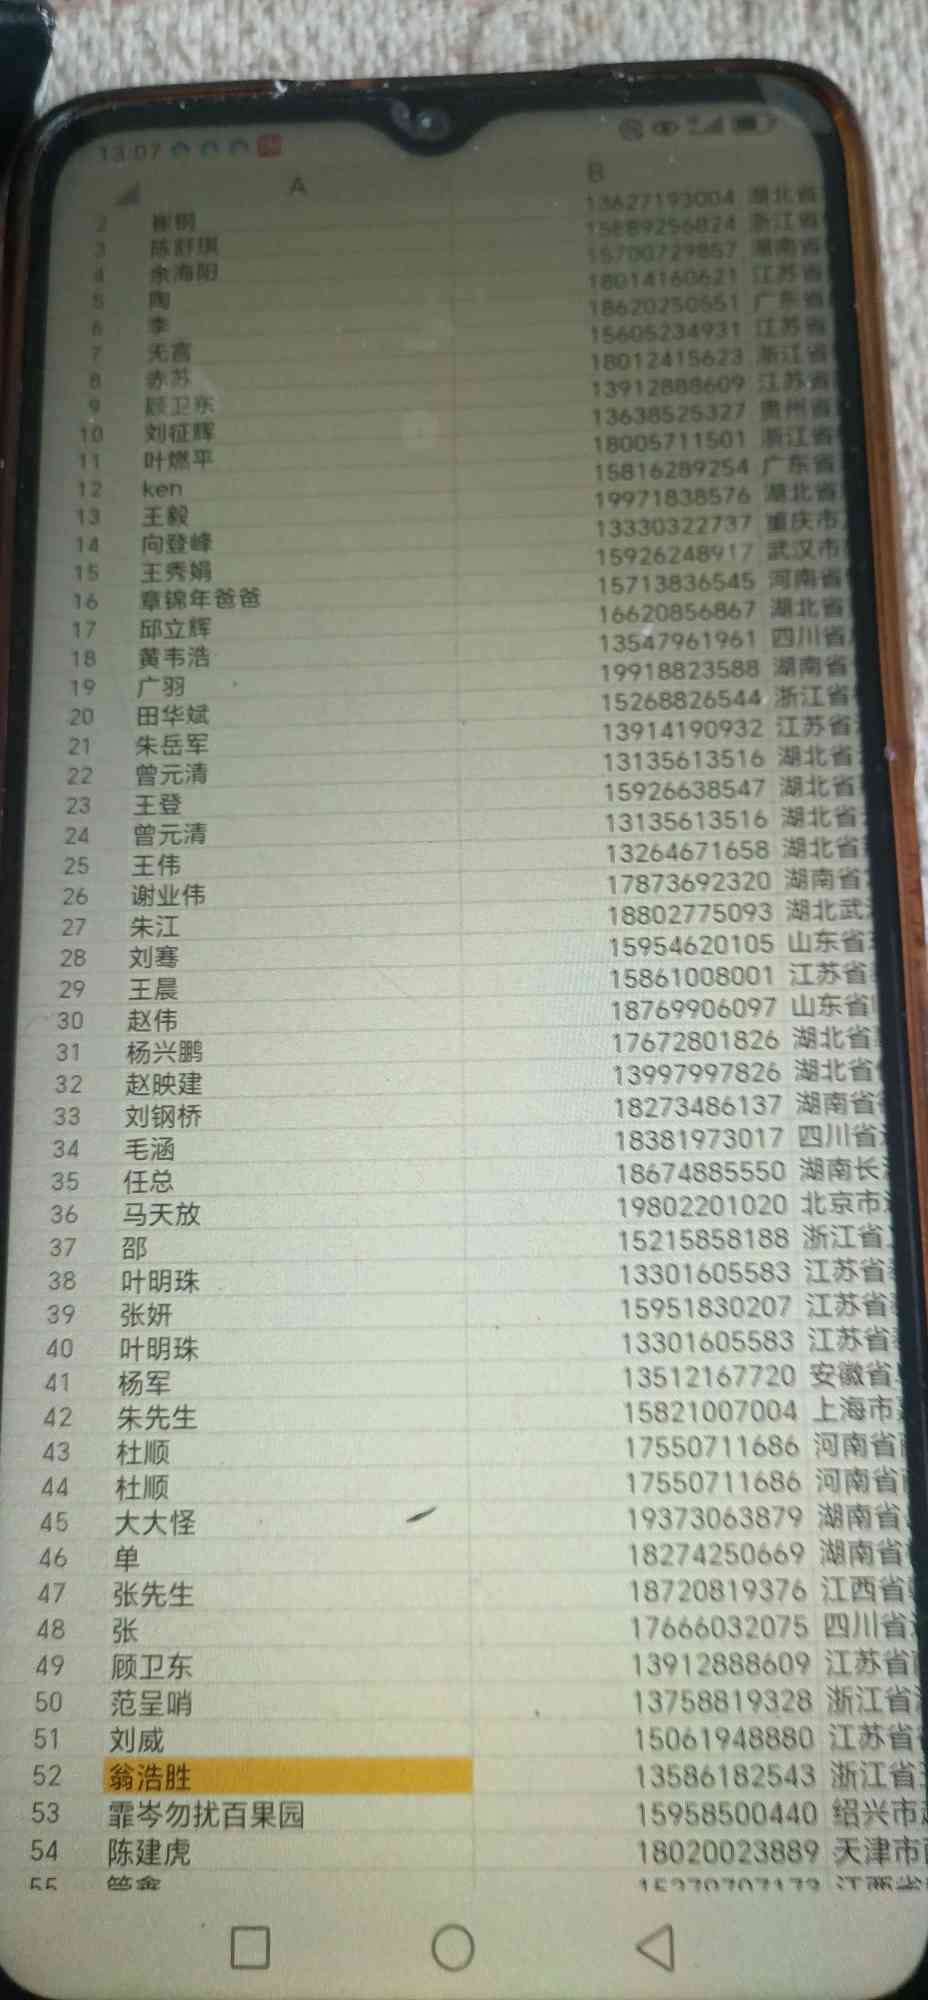 13:07
A B
2 崔钢 13627193004 湖北省
3 陈舒琪 15889256824 浙江省
4 余海阳 15700729857 湖南省
5 陶 18014160621 江苏省
6 李 18620250551 广东省
7 无言 15605234931 江苏省
8 赤苏 18012415623 浙江省
9 顾卫东 13912888609 江苏省
10 刘征辉 13638525327 贵州省
11 叶燃平 18005711501 浙江省
12 ken 15816289254 广东省
13 王毅 19971838576 湖北省
14 向登峰 13330322737 重庆市
15 王秀娟 15926248917 武汉市
16 章锦年爸爸 15713836545 河南省
17 邱立辉 16620856867 湖北省
18 黄韦浩 13547961961 四川省
19 广羽 19918823588 湖南省
20 田华斌 15268826544 浙江省
21 朱岳军 13914190932 江苏省
22 曾元清 13135613516 湖北省
23 王登 15926638547 湖北省
24 曾元清 13135613516 湖北省
25 王伟 13264671658 湖北省
26 谢业伟 17873692320 湖南省
27 朱江 18802775093 湖北武
28 刘骞 15954620105 山东省
29 王晨 15861008001 江苏省
30 赵伟 18769906097 山东省
31 杨兴鹏 17672801826 湖北省
32 赵映建 13997997826 湖北省
33 刘钢桥 18273486137 湖南省
34 毛涵 18381973017 四川省
35 任总 18674885550 湖南长
36 马天放 19802201020 北京市
37 邵 15215858188 浙江省
38 叶明珠 13301605583 江苏省
39 张妍 15951830207 江苏省
40 叶明珠 13301605583 江苏省
41 杨军 13512167720 安徽省
42 朱先生 15821007004 上海市
43 杜顺 17550711686 河南省
44 杜顺 17550711686 河南省
45 大大怪 19373063879 湖南省
46 单 18274250669 湖南省
47 张先生 18720819376 江西省
48 张 17666032075 四川省
49 顾卫东 13912888609 江苏省
50 范呈哨 13758819328 浙江省
51 刘威 15061948880 江苏省
52 翁浩胜 13586182543 浙江省
53 霏岑勿扰百果园 15958500440 绍兴市
54 陈建虎 18020023889 天津市
55